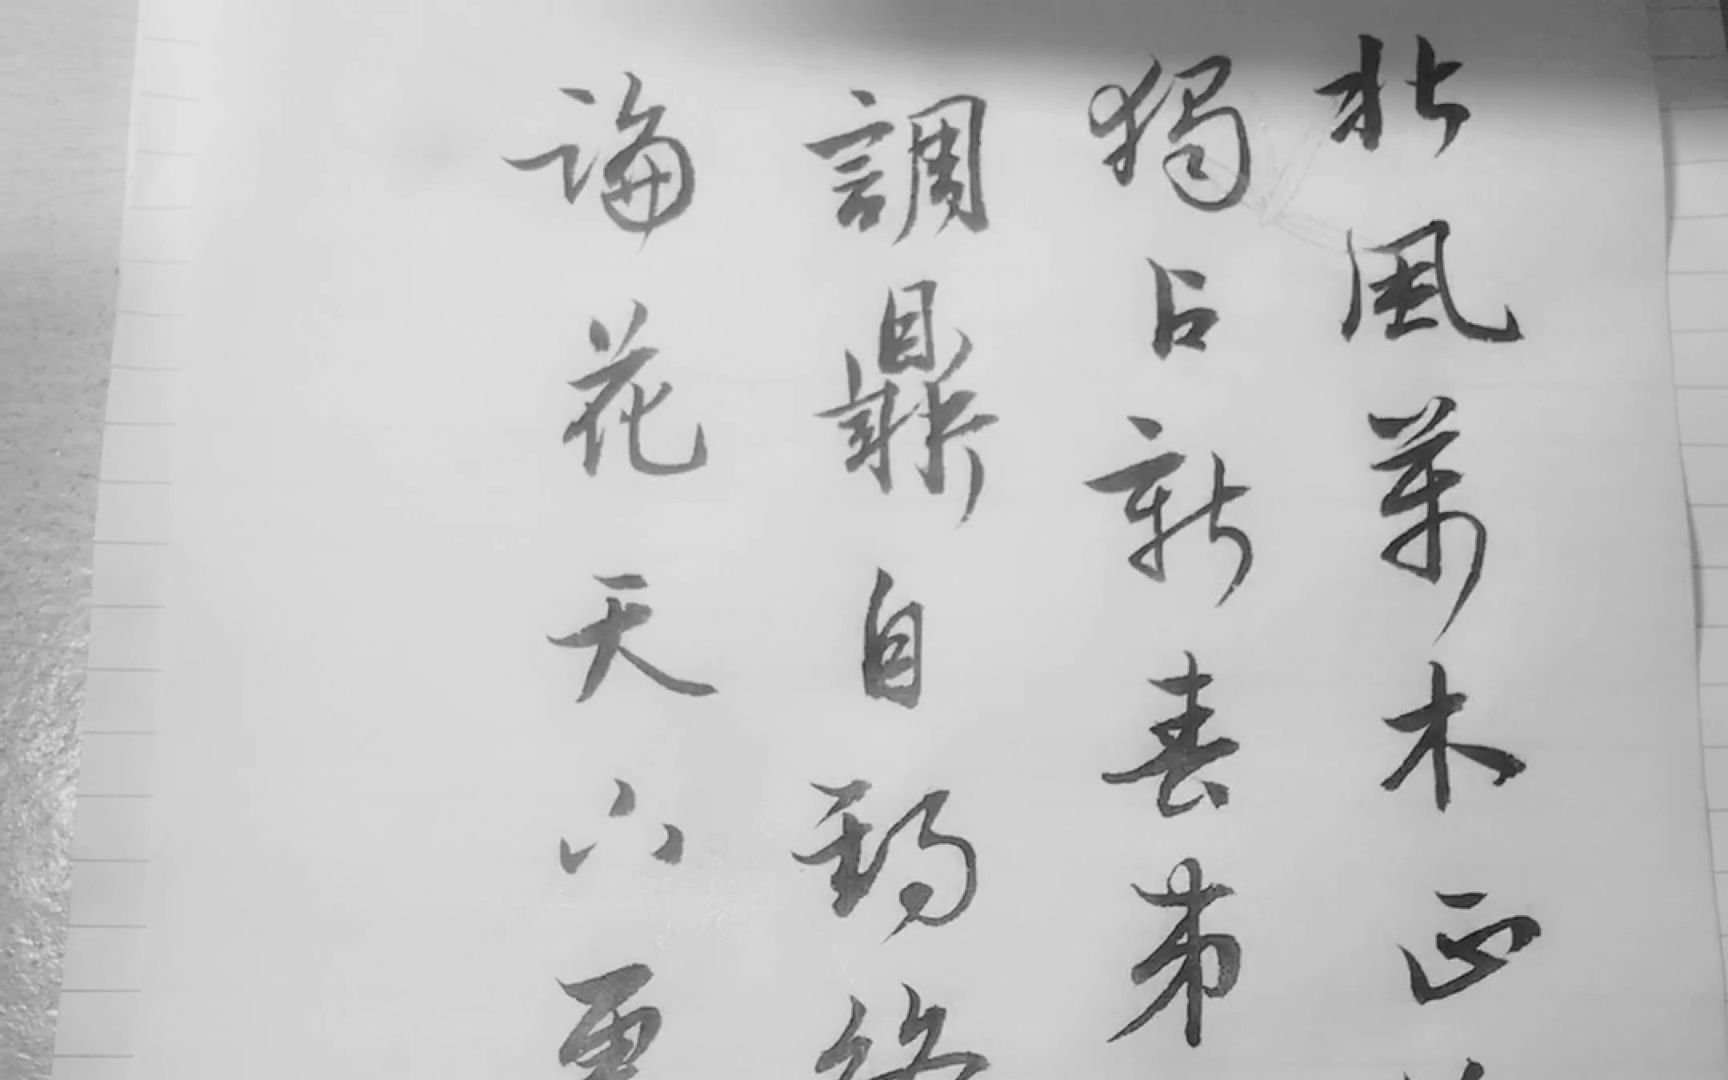 北風萬木正
獨占新春第
調鼎自期終
論花天下更